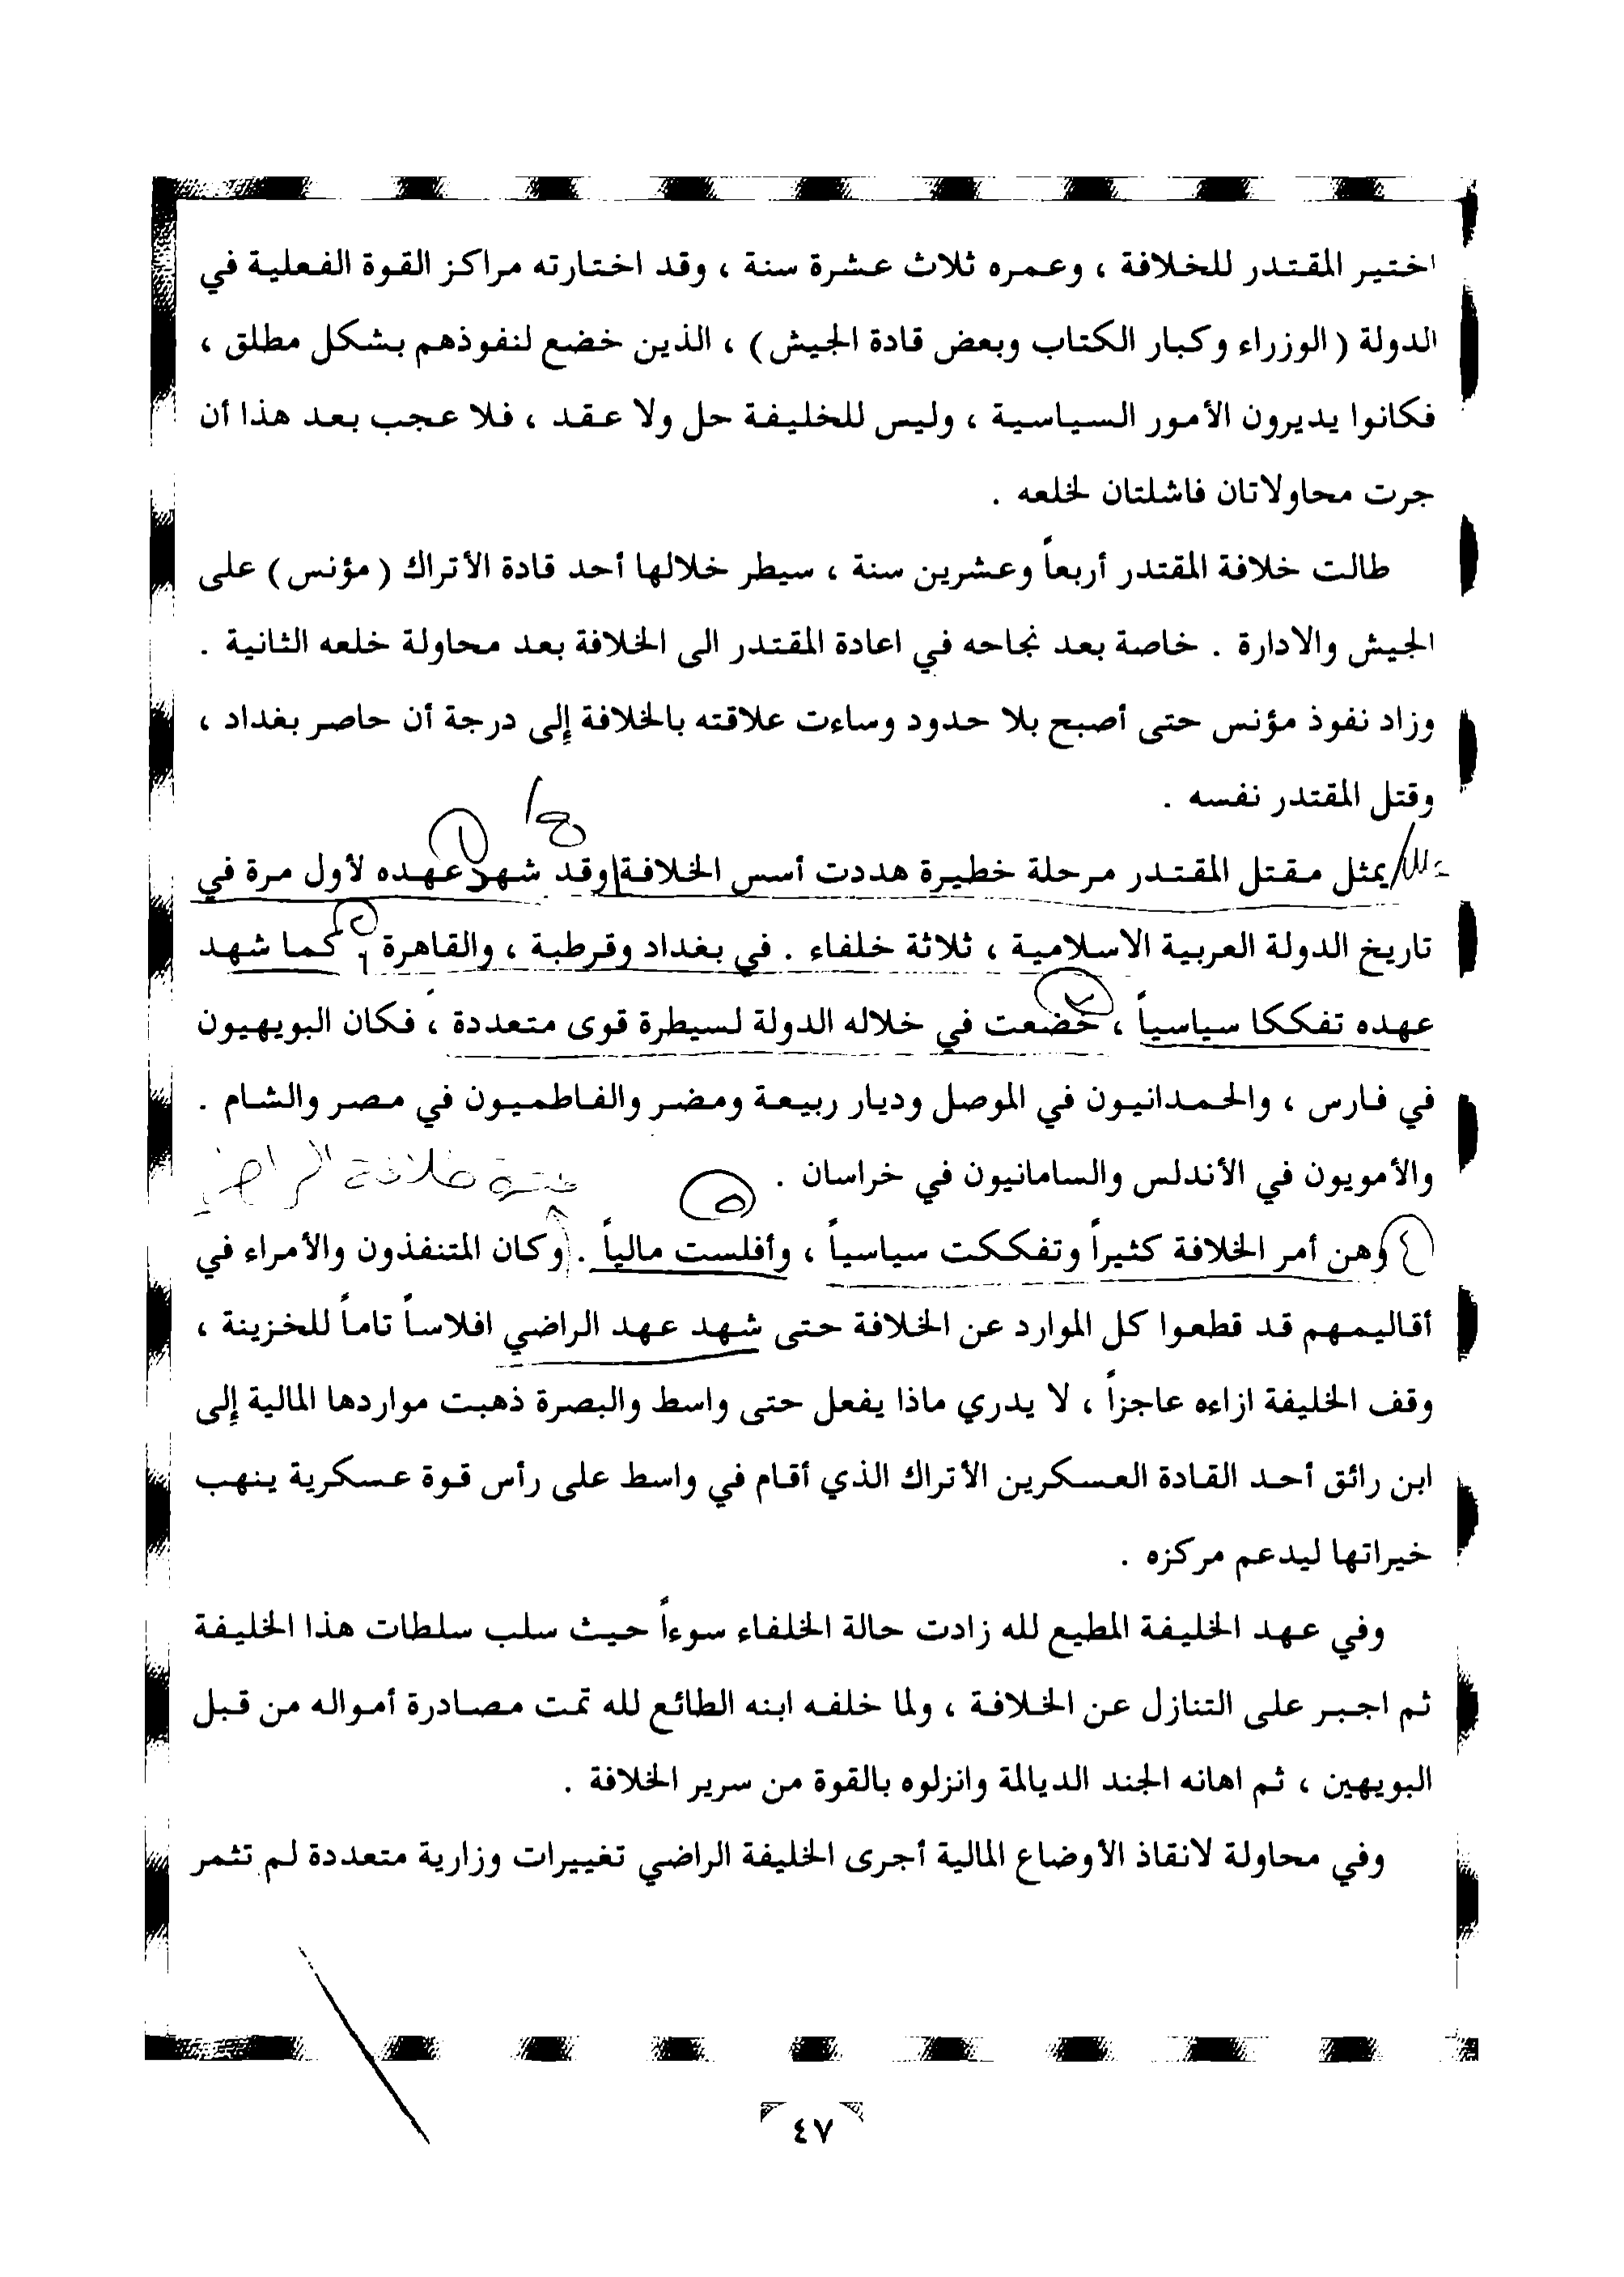 اختير المقتدر للخلافة ، وعمره ثلاث عشرة سنة ، وقد اختارته مراكز القوة الفعلية في
الدولة ( الوزراء وكبار الكتاب وبعض قادة الجيش ) ، الذين خضع لنفوذهم بشكل مطلق ،
فكانوا يديرون الأمور السياسية ، وليس للخليفة حل ولا عقد ، فلا عجب بعد هذا أن
جرت محاولاتان فاشلتان لخلعه .
طالت خلافة المقتدر أربعاً وعشرين سنة ، سيطر خلالها أحد قادة الأتراك ( مؤنس ) على
الجيش والادارة . خاصة بعد نجاحه في اعادة المقتدر الى الخلافة بعد محاولة خلعه الثانية .
وزاد نفوذ مؤنس حتى أصبح بلا حدود وساءت علاقته بالخلافة إلى درجة أن حاصر بغداد ،
وقتل المقتدر نفسه .
يمثل مقتل المقتدر مرحلة خطيرة هددت أسس الخلافة وقد شهد عهده لأول مرة في
تاريخ الدولة العربية الاسلامية ، ثلاثة خلفاء . في بغداد وقرطبة ، والقاهرة ، كما شهد
عهده تفككا سياسياً ، خضعت في خلاله الدولة لسيطرة قوى متعددة ، فكان البويهيون
في فارس ، والحمدانيون في الموصل وديار ربيعة ومضر والفاطميون في مصر والشام .
والأمويون في الأندلس والسامانيون في خراسان .
٥ خلافة الراضي
٤ وهن أمر الخلافة كثيراً وتفككت سياسياً ، وأفلست مالياً . وكان المتنفذون والأمراء في
أقاليمهم قد قطعوا كل الموارد عن الخلافة حتى شهد عهد الراضي افلاساً تاماً للخزينة ،
وقف الخليفة ازاءه عاجزاً ، لا يدري ماذا يفعل حتى واسط والبصرة ذهبت مواردها المالية إلى
ابن رائق أحد القادة العسكرين الأتراك الذي أقام في واسط على رأس قوة عسكرية ينهب
خيراتها ليدعم مركزه .
وفي عهد الخليفة المطيع لله زادت حالة الخلفاء سوءاً حيث سلب سلطات هذا الخليفة
ثم اجبر على التنازل عن الخلافة ، ولما خلفه ابنه الطائع لله تمت مصادرة أمواله من قبل
البويهين ، ثم اهانه الجند الديالمة وانزلوه بالقوة من سرير الخلافة .
وفي محاولة لانقاذ الأوضاع المالية أجرى الخليفة الراضي تغييرات وزارية متعددة لم تثمر
٤٧